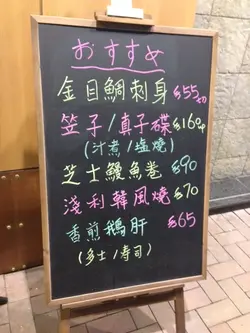 おすすめ
金目鯛刺身 $55
笠子/真子碟 $160
(汁煮/塩燒)
芝士鰻魚卷 $90
淺利韓風燒 $70
香煎鵝肝 $65
(多士/寿司)